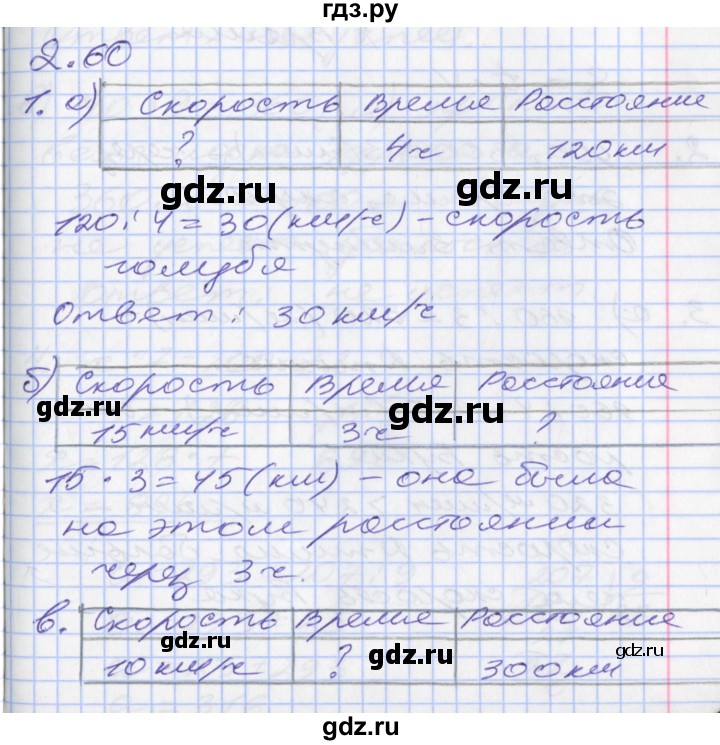 гдз.ру
2.60
1. а) Скорость Время Расстояние
? 4ч 120км
gdz.ru
gdz.ru
120:4=30(км/ч) – скорость
голубя
Ответ: 30км/ч
б) Скорость Время Расстояние
gdz.ru
gdz.ru
15км/ч 3ч ?
15·3=45(км) – она была
на этом расстоянии
через 3ч.
в. Скорость Время Расстояние
gdz.ru
gdz.ru
gdz.ru
10км/ч ? 300км
gdz.ru